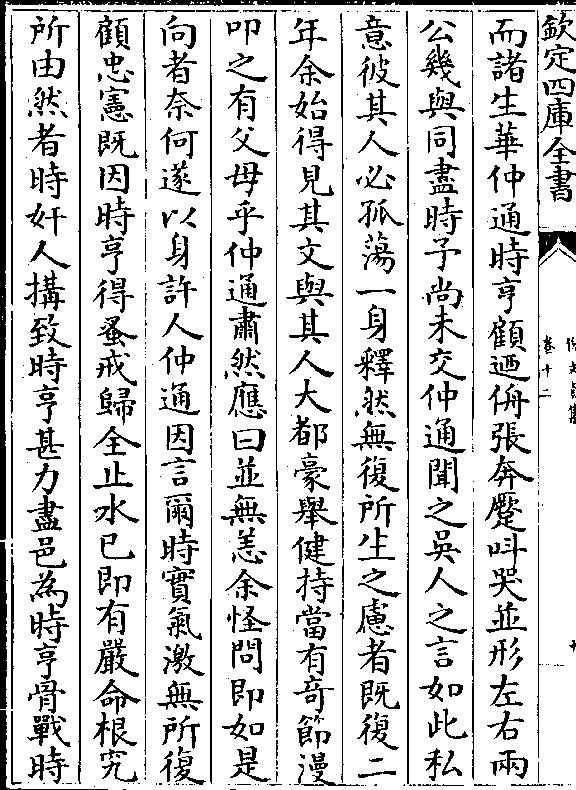 欽定四庫全書
卷十二
而諸生華仲通時亨顧迺侜張奔蹙呌哭並形左右兩
公幾與同盡時予尚未交仲通聞之吳人之言如此私
意彼其人必孤蕩一身釋然無復所生之慮者既復二
年余始得見其文與其人大都豪舉健持當有竒節漫
叩之有父母乎仲通肅然應曰並無恙余怪問即如是
向者奈何遂以身許人仲通因言爾時實氣激無所復
顧忠憲既因時亨得蚤戒歸全止水已即有嚴命根究
所由然者時奸人搆致時亨甚力盡邑為時亨骨戰時